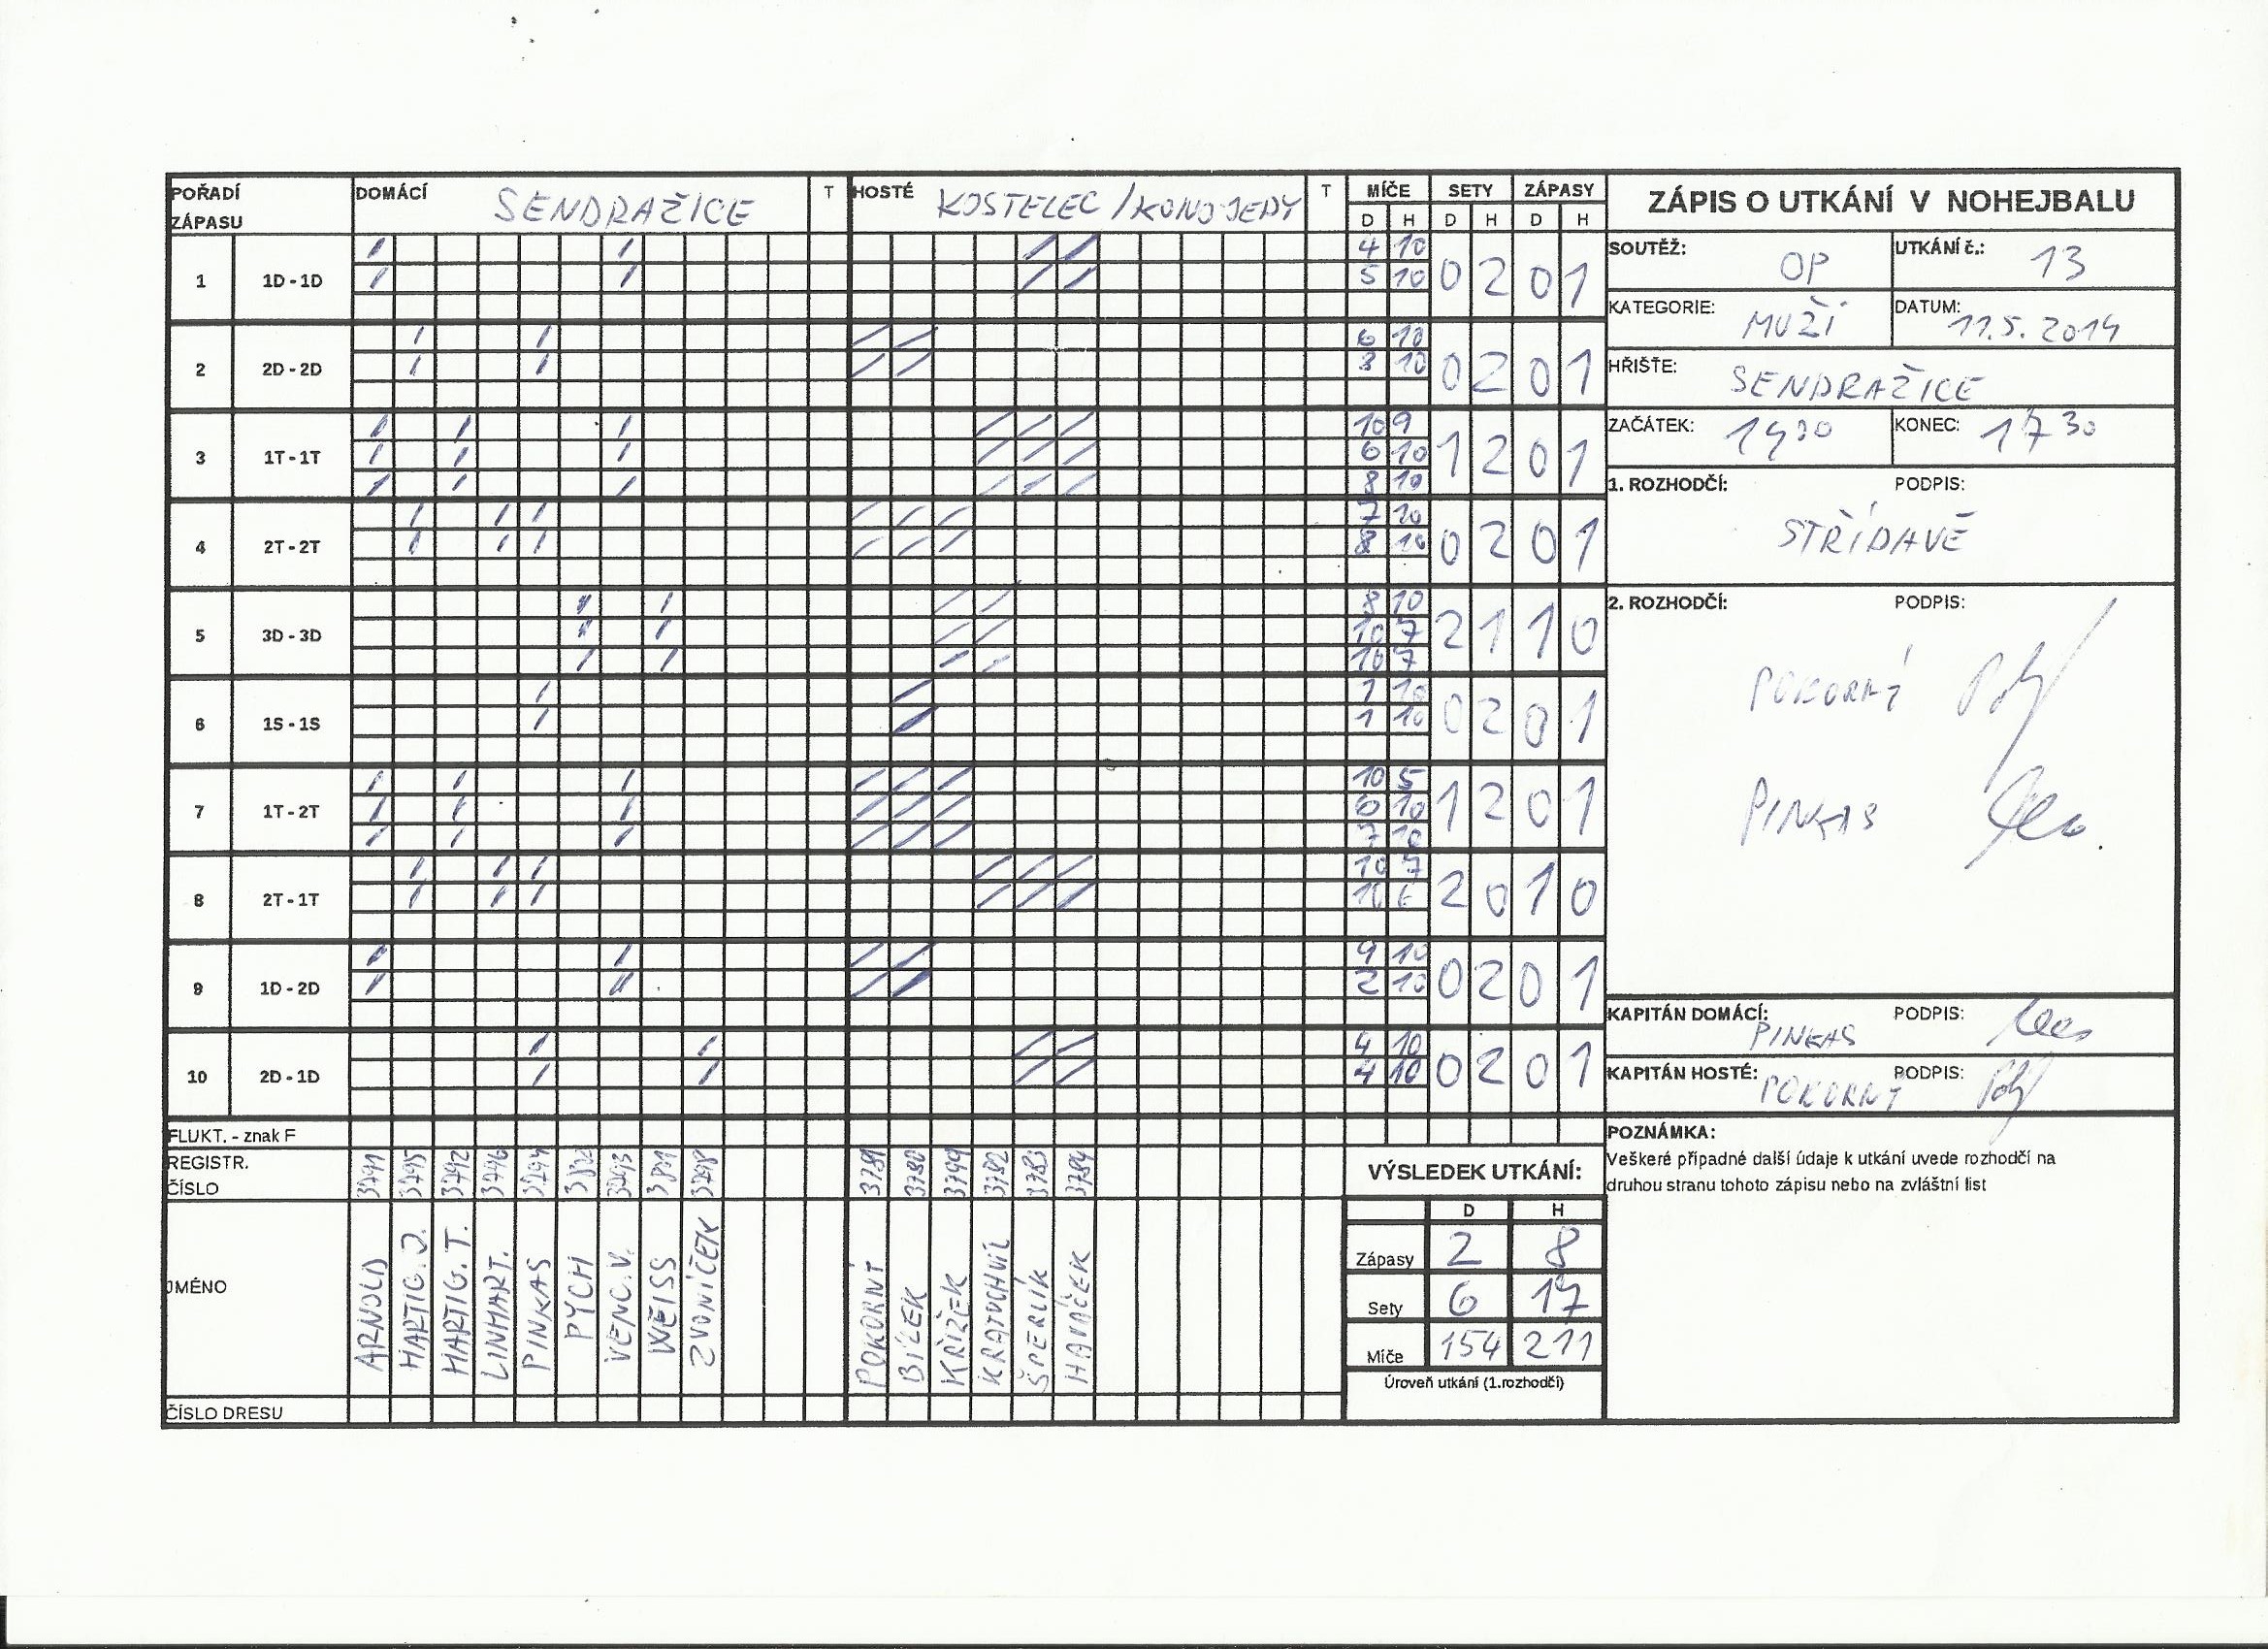 POŘADÍ ZÁPASU DOMÁCÍ SENDRAŽICE T HOSTÉ KOSTELEC / KONOJEDY T MÍČE SETY ZÁPASY
D H D H D H
1 1D - 1D 4 10 0 2 0 1
5 10
2 2D - 2D 6 10 0 2 0 1
3 10
3 1T - 1T 10 9 1 2 0 1
6 10
8 10
4 2T - 2T 7 10 0 2 0 1
8 10
5 3D - 3D 8 10 2 1 1 0
10 7
10 7
6 1S - 1S 1 10 0 2 0 1
1 10
7 1T - 2T 10 5 1 2 0 1
6 10
7 10
8 2T - 1T 10 7 2 0 1 0
10 6
9 1D - 2D 9 10 0 2 0 1
2 10
10 2D - 1D 4 10 0 2 0 1
4 10
FLUKT. - znak F
REGISTR. ČÍSLO 3291 3295 3292 3296 3294 3293 3298 3781 3780 3799 3782 3783 3784
JMÉNO ARNOLD HARTIG. J. HARTIG. T. LINHART. PINKAS PYCH VENC. V. WEISS ZVONÍČEK POKORNÝ BÍLEK KŘÍŽEK KRATOCHVÍL ŠPERLÍK HAVÁČEK
ČÍSLO DRESU
VÝSLEDEK UTKÁNÍ:
D H
Zápasy 2 8
Sety 6 17
Míče 154 211
Úroveň utkání (1.rozhodčí)
ZÁPIS O UTKÁNÍ V NOHEJBALU
SOUTĚŽ: OP UTKÁNÍ č.: 13
KATEGORIE: MUŽI DATUM: 11.5.2014
HŘIŠTE: SENDRAŽICE
ZAČÁTEK: 1400 KONEC: 1730
1. ROZHODČÍ: PODPIS:
STŘÍDAVĚ
2. ROZHODČÍ: PODPIS:
POKORNÝ
PINKAS
KAPITÁN DOMÁCÍ: PINKAS PODPIS:
KAPITÁN HOSTÉ: POKORNÝ PODPIS:
POZNÁMKA:
Veškeré případné další údaje k utkání uvede rozhodčí na
druhou stranu tohoto zápisu nebo na zvláštní list